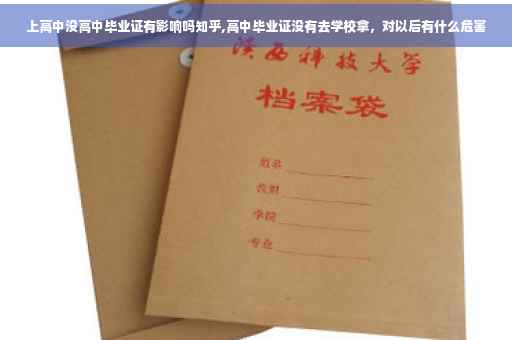 上高中没高中毕业证有影响吗知乎,高中毕业证没有去学校拿，对以后有什么危害
陕西科技大学
档案袋
姓名
学院
专业